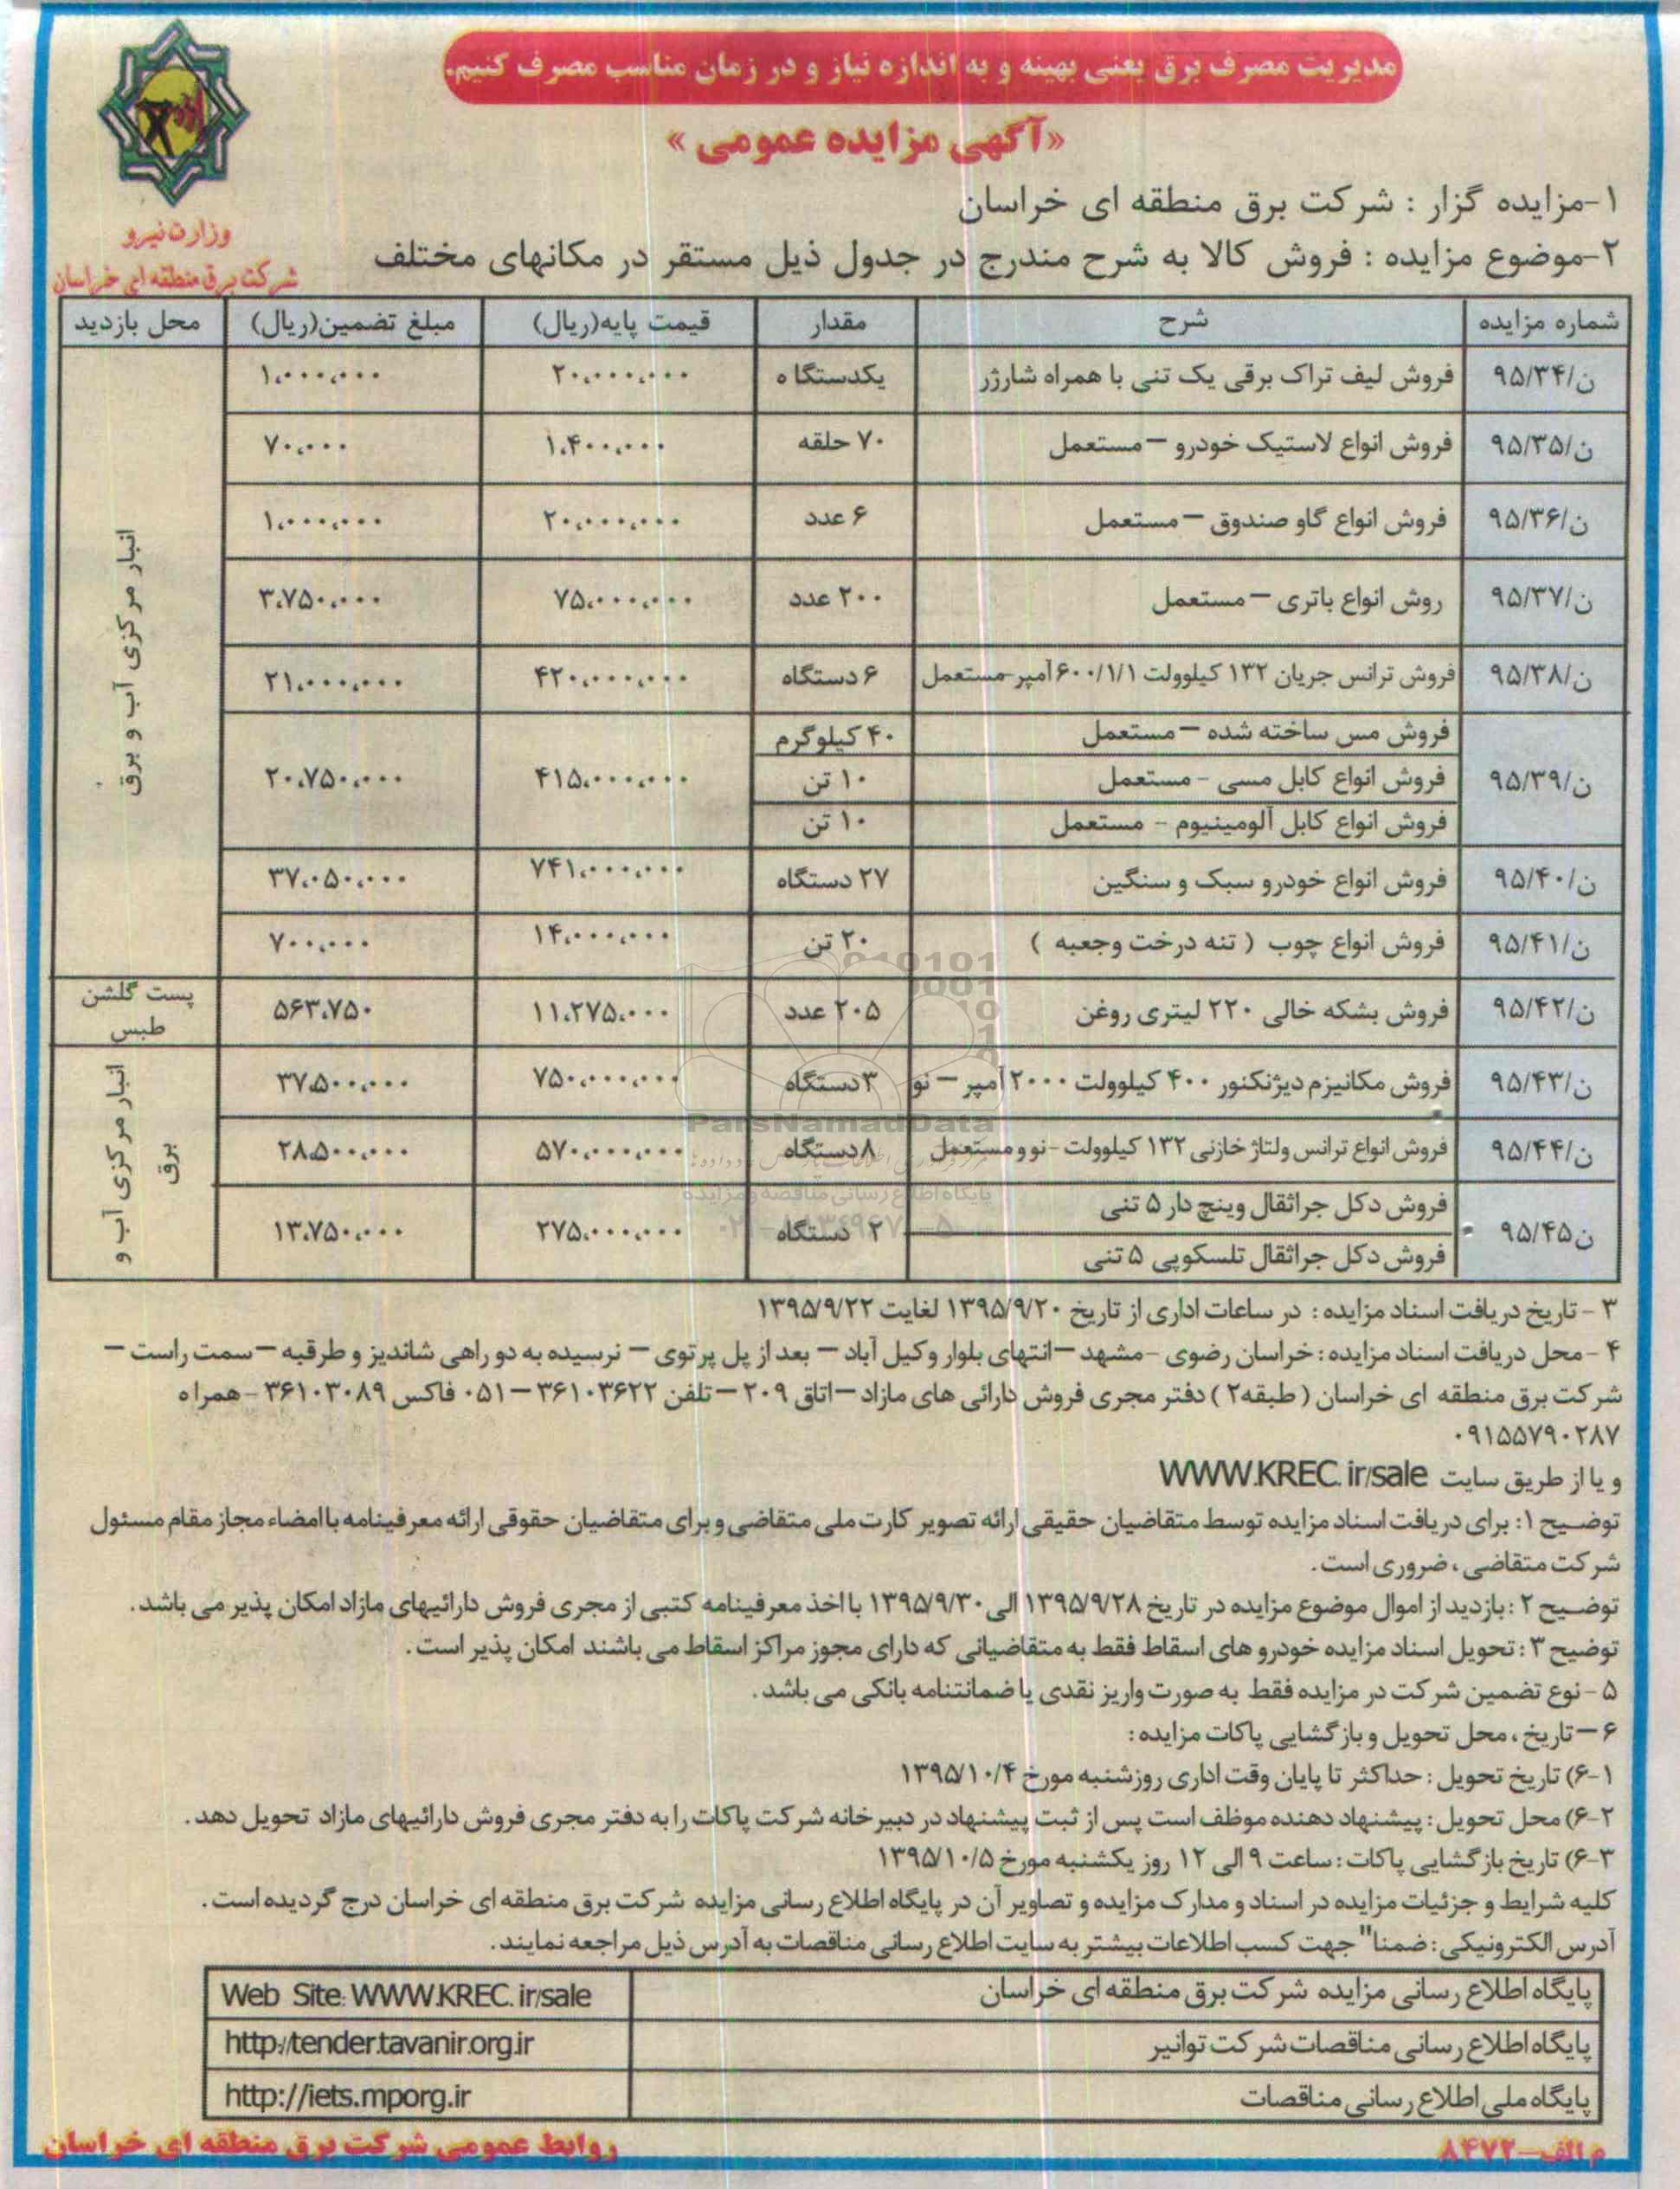 مدیریت مصرف برق یعنی بهینه و به اندازه نیاز و در زمان مناسب مصرف کنیم.
«آگهی مزایده عمومی»
وزارت نیرو
شرکت برق منطقه ای خراسان
۱-مزایده گزار : شرکت برق منطقه ای خراسان
۲-موضوع مزایده : فروش کالا به شرح مندرج در جدول ذیل مستقر در مکانهای مختلف
شماره مزایده شرح مقدار قیمت پایه(ریال) مبلغ تضمین(ریال) محل بازدید
ن/۹۵/۳۴ فروش لیف تراک برقی یک تنی با همراه شارژر یکدستگاه ۲۰،۰۰۰،۰۰۰ ۱،۰۰۰،۰۰۰
ن/۹۵/۳۵ فروش انواع لاستیک خودرو – مستعمل ۷۰ حلقه ۱،۴۰۰،۰۰۰ ۷۰،۰۰۰
ن/۹۵/۳۶ فروش انواع گاو صندوق – مستعمل ۶ عدد ۲۰،۰۰۰،۰۰۰ ۱،۰۰۰،۰۰۰
ن/۹۵/۳۷ روش انواع باتری – مستعمل ۲۰۰ عدد ۷۵،۰۰۰،۰۰۰ ۳،۷۵۰،۰۰۰
ن/۹۵/۳۸ فروش ترانس جریان ۱۳۲ کیلوولت ۶۰۰/۱/۱ آمپر-مستعمل ۶ دستگاه ۴۲۰،۰۰۰،۰۰۰ ۲۱،۰۰۰،۰۰۰
انبار مرکزی آب و برق
فروش مس ساخته شده – مستعمل ۴۰ کیلوگرم
ن/۹۵/۳۹ فروش انواع کابل مسی - مستعمل ۱۰ تن ۴۱۵،۰۰۰،۰۰۰ ۲۰،۷۵۰،۰۰۰
فروش انواع کابل آلومینیوم - مستعمل ۱۰ تن
ن/۹۵/۴۰ فروش انواع خودرو سبک و سنگین ۲۷ دستگاه ۷۴۱،۰۰۰،۰۰۰ ۳۷،۰۵۰،۰۰۰
ن/۹۵/۴۱ فروش انواع چوب ( تنه درخت وجعبه ) ۲۰ تن ۱۴،۰۰۰،۰۰۰ ۷۰۰،۰۰۰
ن/۹۵/۴۲ فروش بشکه خالی ۲۲۰ لیتری روغن ۲۰۵ عدد ۱۱،۲۷۵،۰۰۰ ۵۶۳،۷۵۰ پست گلشن طبس
ن/۹۵/۴۳ فروش مکانیزم دیژنکنور ۴۰۰ کیلوولت ۲۰۰۰ آمپر – نو ۳ دستگاه ۷۵۰،۰۰۰،۰۰۰ ۳۷،۵۰۰،۰۰۰
ن/۹۵/۴۴ فروش انواع ترانس ولتاژ خازنی ۱۳۲ کیلوولت - نو و مستعمل ۸ دستگاه ۵۷۰،۰۰۰،۰۰۰ ۲۸،۵۰۰،۰۰۰
انبار مرکزی آب و برق
فروش دکل جراثقال وینچ دار ۵ تنی
ن۹۵/۴۵ ۲ دستگاه ۲۷۵،۰۰۰،۰۰۰ ۱۳،۷۵۰،۰۰۰
فروش دکل جراثقال تلسکوپی ۵ تنی
ParsNamadData
پایگاه اطلاع رسانی مناقصه و مزایده
۳ - تاریخ دریافت اسناد مزایده : در ساعات اداری از تاریخ ۱۳۹۵/۹/۲۰ لغایت ۱۳۹۵/۹/۲۲
۴ - محل دریافت اسناد مزایده : خراسان رضوی -مشهد –انتهای بلوار وکیل آباد – بعد از پل پرتوی – نرسیده به دو راهی شاندیز و طرقبه –سمت راست –
شرکت برق منطقه ای خراسان ( طبقه۲ ) دفتر مجری فروش دارائی های مازاد –اتاق ۲۰۹ –تلفن ۳۶۱۰۳۶۲۲ – ۰۵۱ فاکس ۳۶۱۰۳۰۸۹ - همراه
۰۹۱۵۵۷۹۰۲۸۷
و یا از طریق سایت WWW.KREC.ir/sale
توضیح ۱: برای دریافت اسناد مزایده توسط متقاضیان حقیقی ارائه تصویر کارت ملی متقاضی و برای متقاضیان حقوقی ارائه معرفینامه با امضاء مجاز مقام مسئول
شرکت متقاضی ، ضروری است .
توضیح ۲ : بازدید از اموال موضوع مزایده در تاریخ ۱۳۹۵/۹/۲۸ الی ۱۳۹۵/۹/۳۰ با اخذ معرفینامه کتبی از مجری فروش دارائیهای مازاد امکان پذیر می باشد .
توضیح ۳ : تحویل اسناد مزایده خودرو های اسقاط فقط به متقاضیانی که دارای مجوز مراکز اسقاط می باشند امکان پذیر است .
۵ - نوع تضمین شرکت در مزایده فقط به صورت واریز نقدی یا ضمانتنامه بانکی می باشد .
۶ – تاریخ ، محل تحویل و بازگشایی پاکات مزایده :
۶-۱) تاریخ تحویل : حداکثر تا پایان وقت اداری روزشنبه مورخ ۱۳۹۵/۱۰/۴
۶-۲) محل تحویل : پیشنهاد دهنده موظف است پس از ثبت پیشنهاد در دبیرخانه شرکت پاکات را به دفتر مجری فروش دارائیهای مازاد تحویل دهد .
۶-۳) تاریخ بازگشایی پاکات : ساعت ۹ الی ۱۲ روز یکشنبه مورخ ۱۳۹۵/۱۰/۵
کلیه شرایط و جزئیات مزایده در اسناد و مدارک مزایده و تصاویر آن در پایگاه اطلاع رسانی مزایده شرکت برق منطقه ای خراسان درج گردیده است .
آدرس الکترونیکی : ضمنا" جهت کسب اطلاعات بیشتر به سایت اطلاع رسانی مناقصات به آدرس ذیل مراجعه نمایند .
پایگاه اطلاع رسانی مزایده شرکت برق منطقه ای خراسان Web Site: WWW.KREC.ir/sale
پایگاه اطلاع رسانی مناقصات شرکت توانیر http://tender.tavanir.org.ir
پایگاه ملی اطلاع رسانی مناقصات http://iets.mporg.ir
م الف-۸۴۷۲ روابط عمومی شرکت برق منطقه ای خراسان